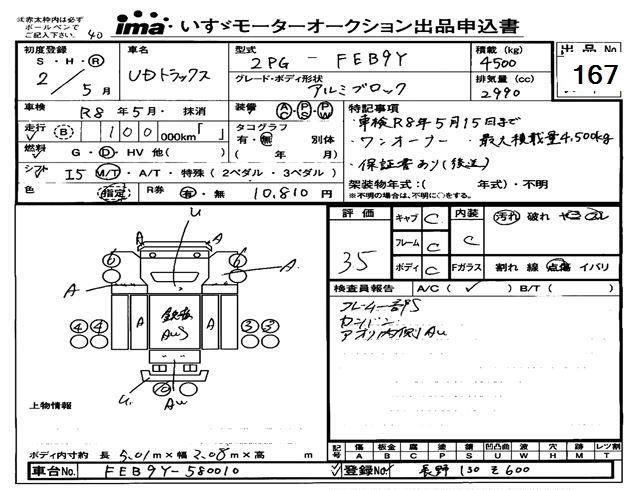 ※赤太枠内は必ず
ボールペンで
ご記入下さい。
40
ima いすゞモーターオークション出品申込書
初度登録 S・H・R 2／5月
車名 UDトラックス
型式 2PG - FEB9Y
グレード・ボディ形状 アルミブロック
積載(kg) 4500
排気量(cc) 2990
出品No 167
車検 R8年5月・抹消
装備 AC・PS・PW
走行 B 100 000km「 」
タコグラフ 有・無 別体
(年 月)
燃料 G・D・HV 他( )
シフト I5 M/T・A/T・特殊(2ペダル・3ペダル)
色 指定 R券 有・無 10,810円
特記事項
・車検R8年5月15日まで
・ワンオーナー ・最大積載量4,500kg
・保証書あり(後送)
架装物年式:( 年式)・不明
※不明の場合は、不明に○をする。
評価 3.5
キャブ C
フレーム C
ボディ C
内装 C
汚れ 破れ ヤニ
Fガラス 割れ 線 点傷 イバリ
検査員報告 A/C(✓) B/T( )
フレーム一部S
アオリ内側AU
U
A A
6 6
A A
A A
鉄板
AUS
4 4 3 3
U AU
上物情報
ボディ内寸約 長 5.01m×幅 2.08m×高 m
記号 傷A 板金B 腐C 塗P 錆S 凹凸曲U 波W 穴H 跡M レツ割T
車台No. FEB9Y-580010
登録No. 長野130 そ600